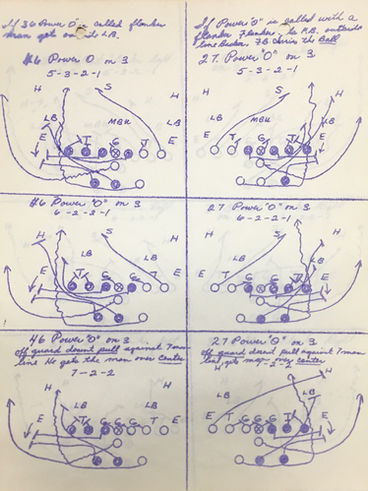 If 36 Power "O" is called flanker
man gets outside LB.
#6 Power O on 3
5-3-2-1
H
S
H
LB
MBK
LB
E
T
G
T
E
If Power "O" is called with a
flanker, Flanker, to K.B. outside
line Backer. FB Carries the Ball
27. Power "O" on 3
5-3-2-1
H
S
H
LB
MBK
LB
E
T
G
T
E
#6 Power "O" on 3
6-2-2-1
H
S
H
LB
LB
E
T
G
G
T
E
27 Power "O" on 3
6-2-2-1
H
S
H
LB
LB
E
T
G
G
T
E
46 Power "O" on 3
off guard doesnt pull against 7 man
line He gets the man over center
7-2-2
H
H
LB
LB
E
T
G
G
G
T
E
27 Power "O" on 3
off guard doesnt pull against 7 man
over center
7-2-2
H
H
LB
LB
E
T
G
G
G
T
E